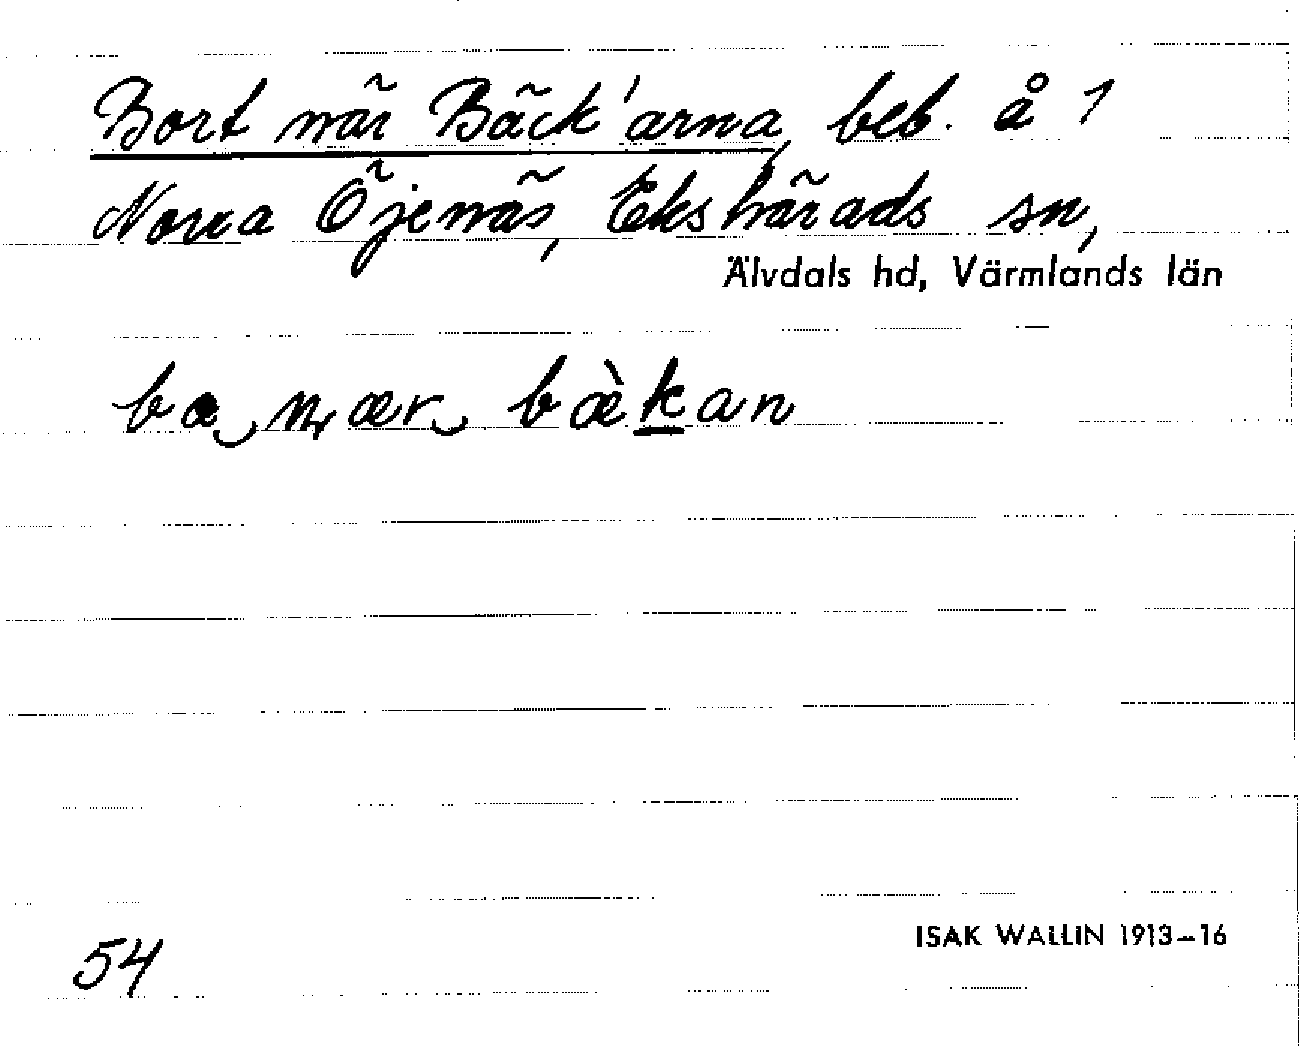 Bort när Bäck'arna, beb. å 1
Norra Öjenäs, Ekshärads sn,
Älvdals hd, Värmlands län
ba‿n̡ ær‿ bæ̀k̲an
54
ISAK WALLIN 1913–16